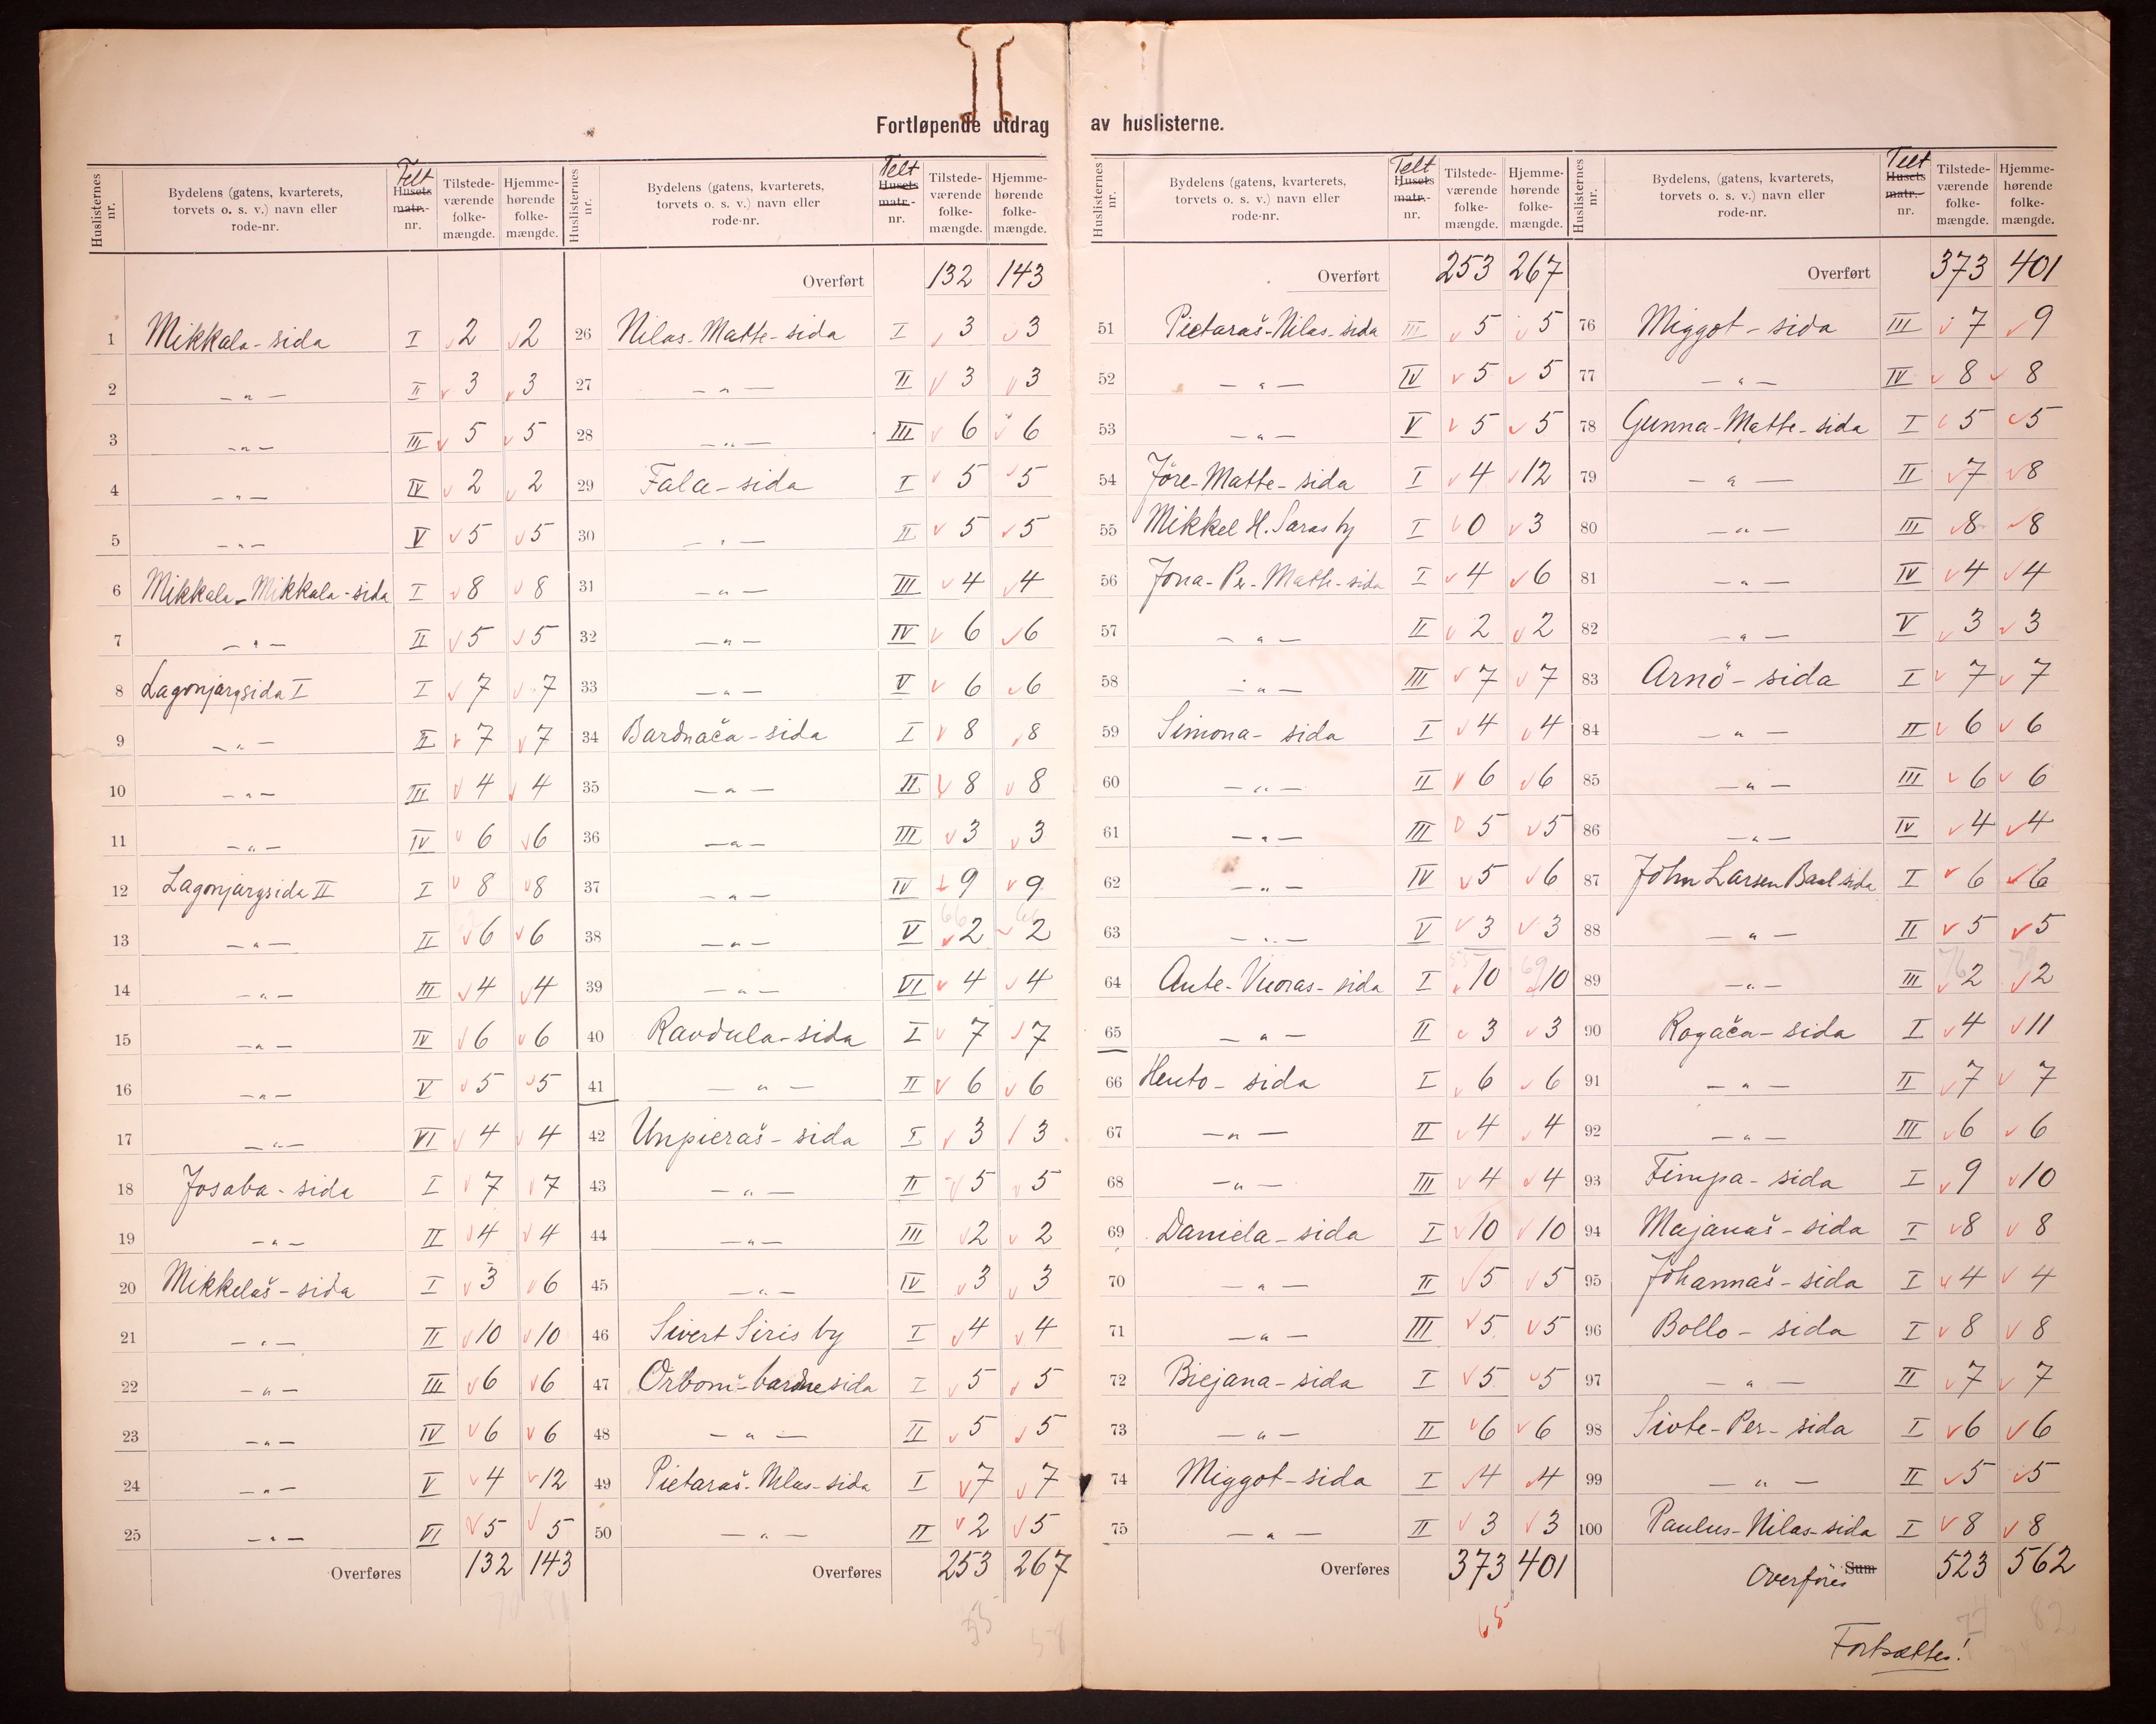 Fortløpende utdrag av huslisterne.
Huslisternes nr. | Bydelens (gatens, kvarterets, torvets o. s. v.) navn eller rode-nr. | Telt Husets matr.-nr. | Tilstede-værende folke-mængde. | Hjemme-hørende folke-mængde.
1 Mikkala-sida I 2 2
2 —„— II 3 3
3 —„— III 5 5
4 —„— IV 2 2
5 —„— V 5 5
6 Mikkala-Mikkala-sida I 8 8
7 —„— II 5 5
8 Lagonjargsida I I 7 7
9 —„— II 7 7
10 —„— III 4 4
11 —„— IV 6 6
12 Lagonjargsida II I 8 8
13 —„— II 6 6
14 —„— III 4 4
15 —„— IV 6 6
16 —„— V 5 5
17 —„— VI 4 4
18 Josaba-sida I 7 7
19 —„— II 4 4
20 Mikkelaš-sida I 3 6
21 —„— II 10 10
22 —„— III 6 6
23 —„— IV 6 6
24 —„— V 4 12
25 —„— VI 5 5
Overføres 132 143
Huslisternes nr. | Bydelens (gatens, kvarterets, torvets o. s. v.) navn eller rode-nr. | Telt Husets matr.-nr. | Tilstede-værende folke-mængde. | Hjemme-hørende folke-mængde.
Overført 132 143
26 Nilas-Matte-sida I 3 3
27 —„— II 3 3
28 —„— III 6 6
29 Fala-sida I 5 5
30 —„— II 5 5
31 —„— III 4 4
32 —„— IV 6 6
33 —„— V 6 6
34 Bardnača-sida I 8 8
35 —„— II 8 8
36 —„— III 3 3
37 —„— IV 9 9
38 —„— V 2 2
39 —„— VI 4 4
40 Ravdula-sida I 7 7
41 —„— II 6 6
42 Unpieraš-sida I 3 3
43 —„— II 5 5
44 —„— III 2 2
45 —„— IV 3 3
46 Sivert Siris by I 4 4
47 Orbom-bardnesida I 5 5
48 —„— II 5 5
49 Pietaraš-Nilas-sida I 7 7
50 —„— II 2 5
Overføres 253 267
Huslisternes nr. | Bydelens (gatens, kvarterets, torvets o. s. v.) navn eller rode-nr. | Telt Husets matr.-nr. | Tilstede-værende folke-mængde. | Hjemme-hørende folke-mængde.
Overført 253 267
51 Pietaraš-Nilas-sida III 5 5
52 —„— IV 5 5
53 —„— V 5 5
54 Jöre-Matte-sida I 4 12
55 Mikkel H. Saras by I 0 3
56 Jona-Per-Matte-sida I 4 6
57 —„— II 2 2
58 —„— III 7 7
59 Simona-sida I 4 4
60 —„— II 6 6
61 —„— III 5 5
62 —„— IV 5 6
63 —„— V 3 3
64 Ante-Vuoras-sida I 10 10
65 —„— II 3 3
66 Hento-sida I 6 6
67 —„— II 4 4
68 —„— III 4 4
69 Daniela-sida I 10 10
70 —„— II 5 5
71 —„— III 5 5
72 Biejana-sida I 5 5
73 —„— II 6 6
74 Miggot-sida I 4 4
75 —„— II 3 3
Overføres 373 401
65
Huslisternes nr. | Bydelens, (gatens, kvarterets, torvets o. s. v.) navn eller rode-nr. | Telt Husets matr.-nr. | Tilstede-værende folke-mængde. | Hjemme-hørende folke-mængde.
Overført 373 401
76 Miggot-sida III 7 9
77 —„— IV 8 8
78 Gunna-Matte-sida I 5 5
79 —„— II 7 8
80 —„— III 8 8
81 —„— IV 4 4
82 —„— V 3 3
83 Arnö-sida I 7 7
84 —„— II 6 6
85 —„— III 6 6
86 —„— IV 4 4
87 John Larsen Baal sida I 6 6
88 —„— II 5 5
89 —„— III 2 2
90 Rogača-sida I 4 11
91 —„— II 7 7
92 —„— III 6 6
93 Fimpa-sida I 9 10
94 Majanaš-sida I 8 8
95 Johannaš-sida I 4 4
96 Bollo-sida I 8 8
97 —„— II 7 7
98 Sivte-Per-sida I 6 6
99 —„— II 5 5
100 Paulus-Nilas-sida I 8 8
Overføres Sum 523 562
Fortsættes!